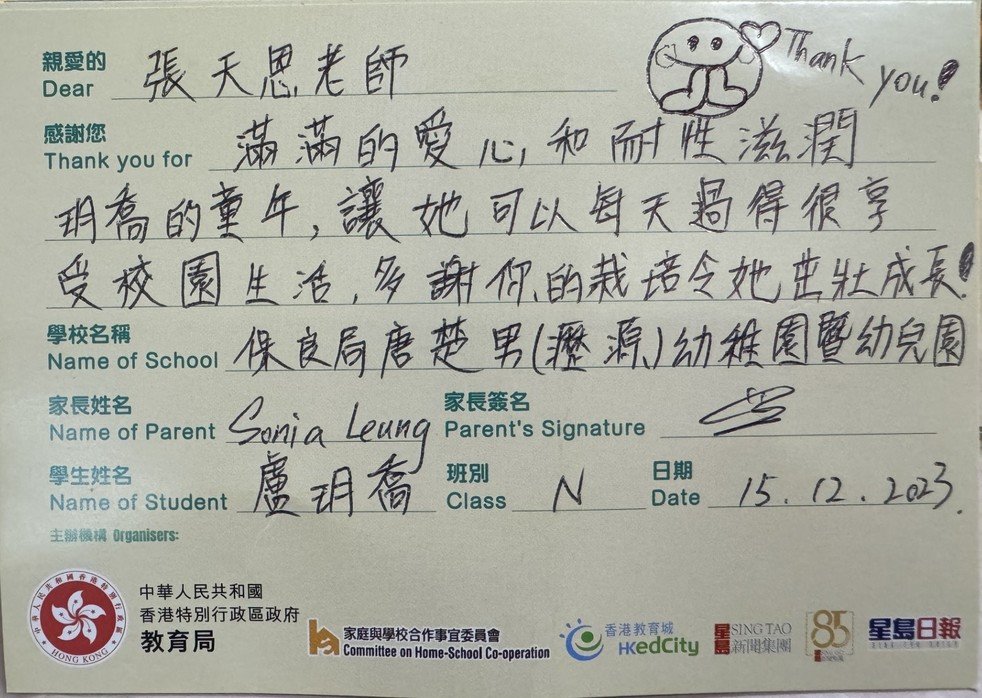 親愛的 張天恩老師 Thank you!
Dear
感謝您
Thank you for 滿滿的愛心,和耐性滋潤
玥喬的童年,讓她可以每天過得很享
受校園生活,多謝你的栽培令她茁壯成長!
學校名稱
Name of School 保良局唐楚男(瀝源)幼稚園暨幼兒園
家長姓名 家長簽名
Name of Parent Sonia Leung Parent's Signature
學生姓名 班別 日期
Name of Student 盧玥喬 Class N Date 15.12.2023.
主辦機構 Organisers:
中華人民共和國
香港特別行政區政府
教育局
中華人民共和國香港特別行政區
HONG KONG
家庭與學校合作事宜委員會
Committee on Home-School Co-operation
香港教育城
HKedCity
星島 SING TAO
新聞集團
85
星島日報
SING TAO DAILY